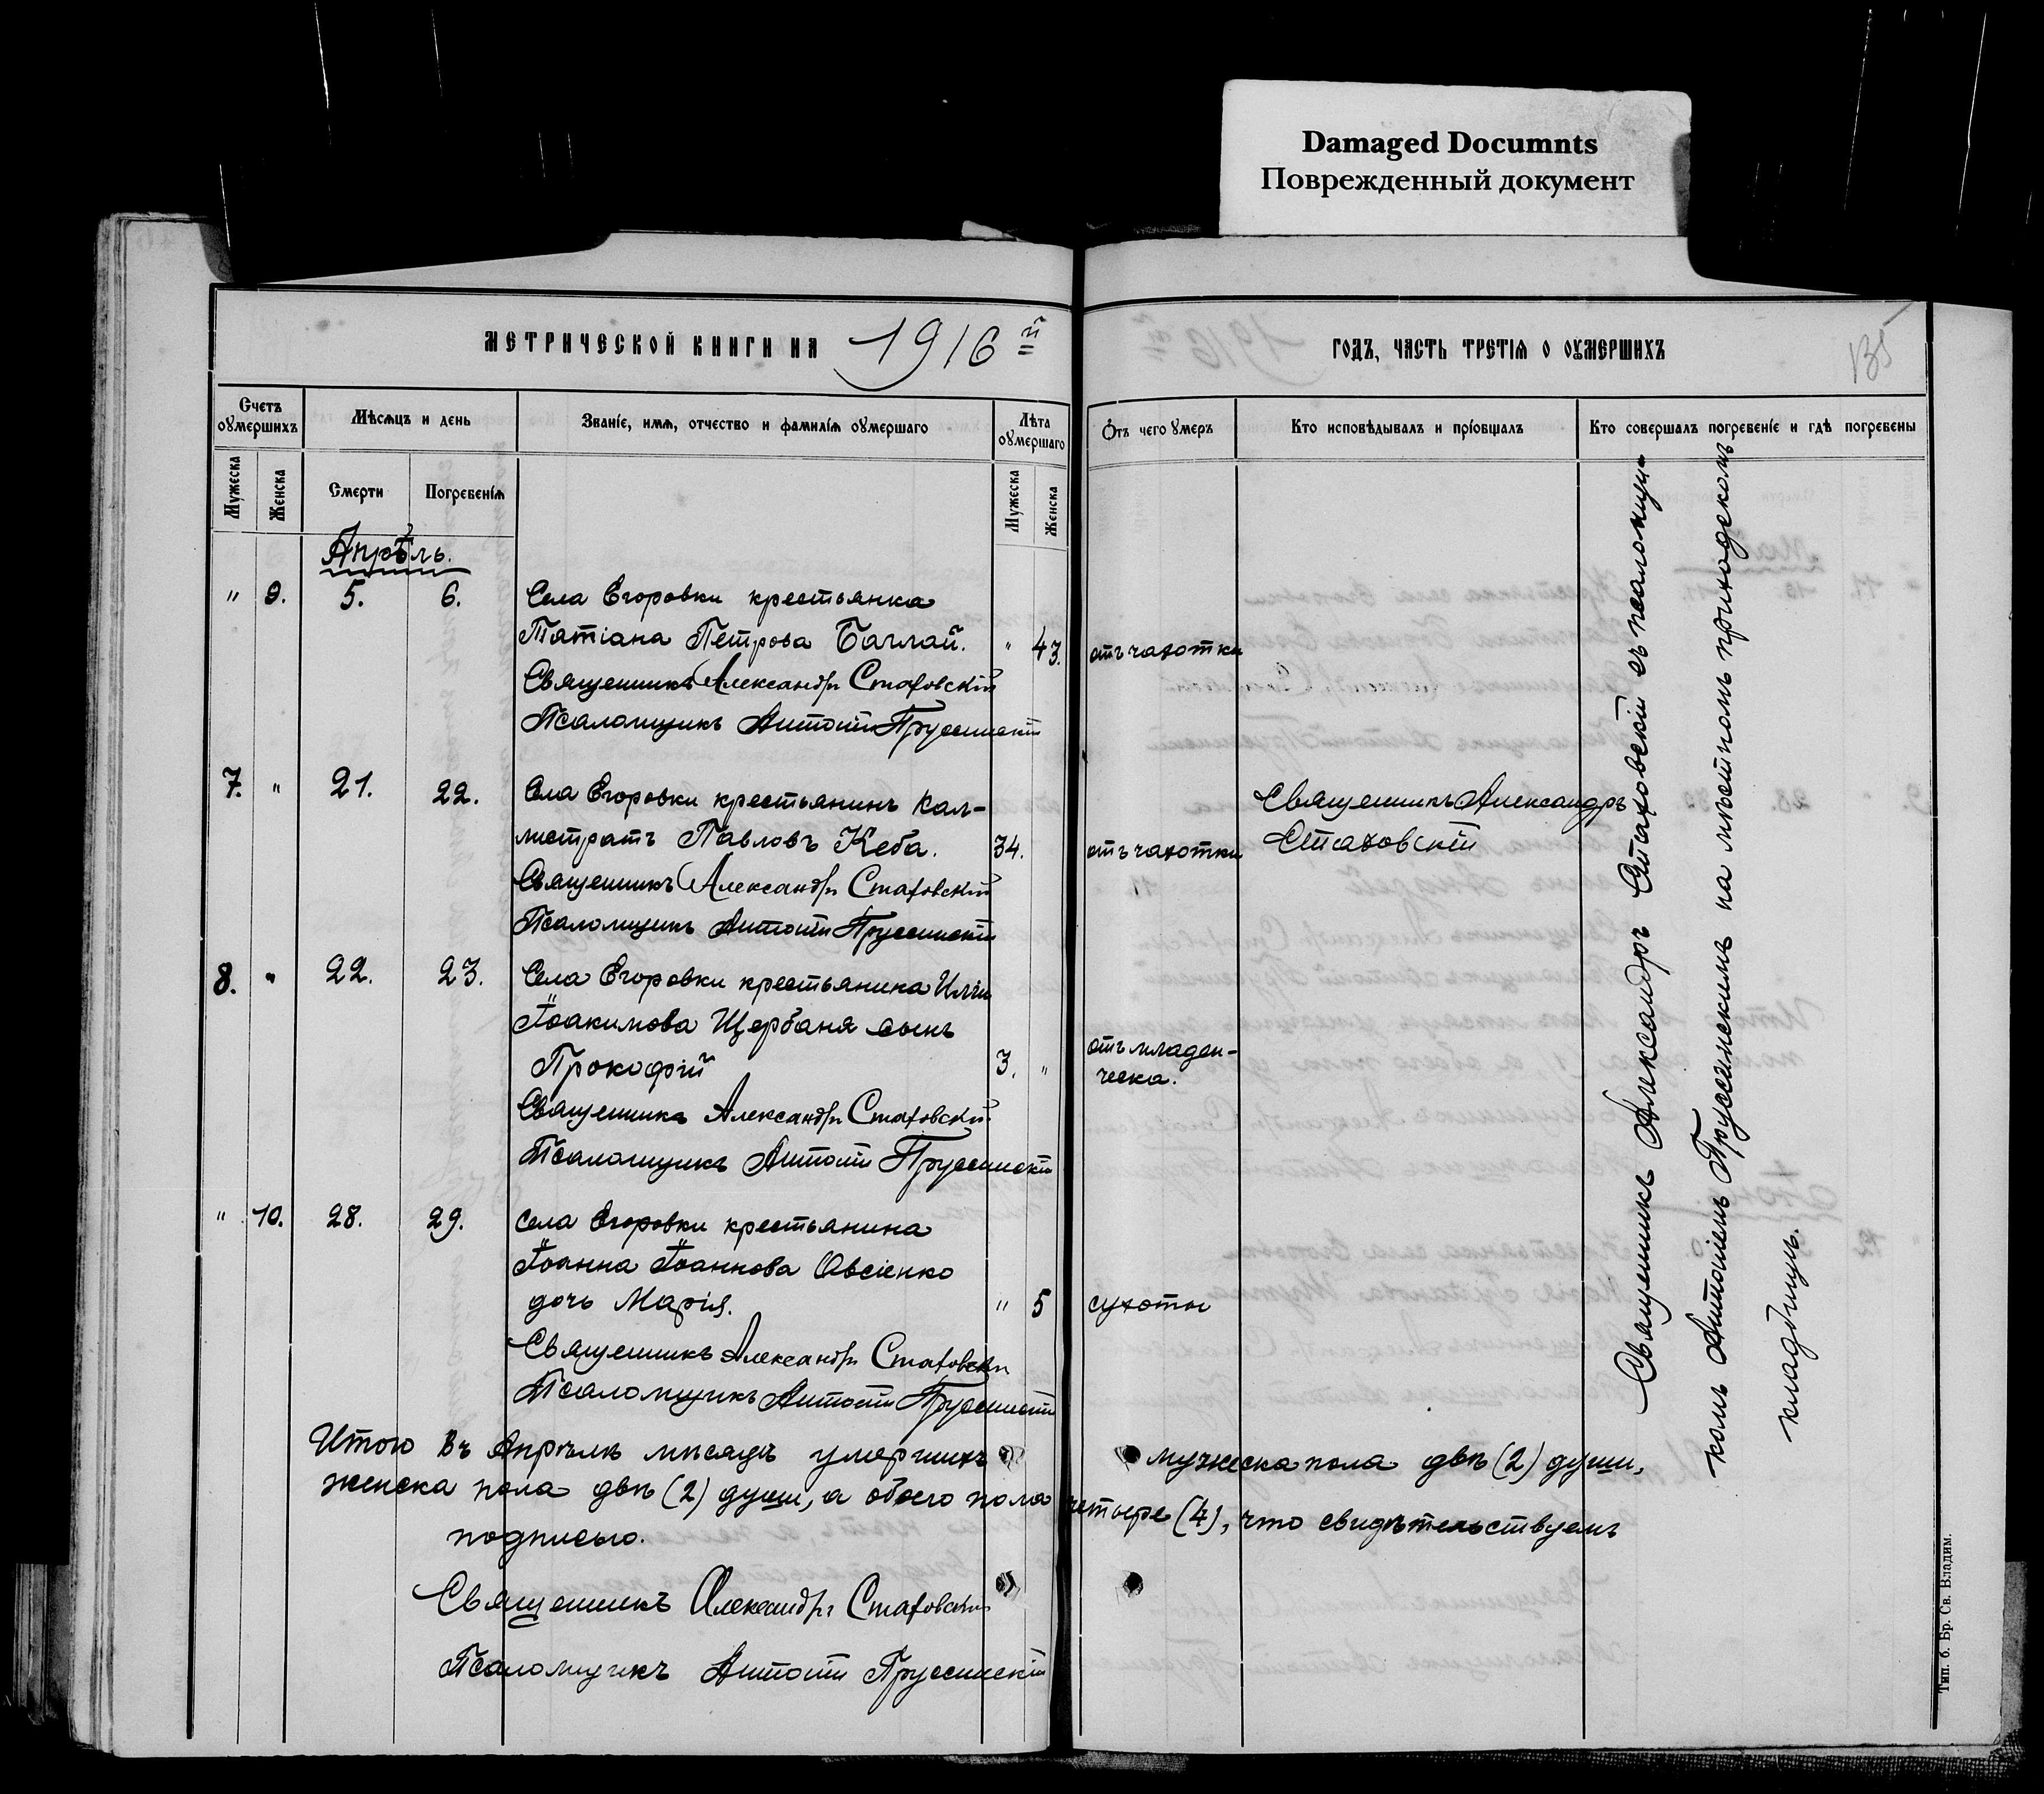 Damaged Documnts
Поврежденный документ
МЕТРИЧЕСКОЙ КНИГИ НА 1916 й
ГОДЪ, ЧАСТЬ ТРЕТІѦ О ОУМЕРШИХЪ
135
Счетъ оумершихъ
Мѣсѧцъ и день
Званіе, имѧ, отчество и фамиліѧ оумершаго
Лѣта оумершаго
Отъ чего умеръ
Кто исповѣдывалъ и пріобщалъ
Кто совершалъ погребеніе и гдѣ погребены
Мужеска
Женска
Смерти
Погребеніѧ
Мужеска
Женска
Апрѣль.
" 9. 5. 6. Села Егоровки крестьянка
Татіана Петрова Баглай. " 43. отъ чахотки
Священникъ Александръ Стаховскій
Псаломщикъ Антоній Пруссинскій
7. " 21. 22. Села Егоровки крестьянинъ Кал-
листратъ Павловъ Кеба. 34. отъ чахотки
Священникъ Александръ
Стаховскій
Священникъ Александръ Стаховскій
Псаломщикъ Антоній Пруссинскій
8. " 22. 23. Села Егоровки крестьянина Иліи
Іоакимова Щербаня сынъ
Прокофій 3. " отъ младен-
ческа.
Священникъ Александръ Стаховскій
Псаломщикъ Антоній Пруссинскій
" 10. 28. 29. Села Егоровки крестьянина
Іоанна Іоаннова Овсіенко
дочь Марія. " 5 сухоты
Священникъ Александръ Стаховскій
Псаломщикъ Антоній Пруссинскій
Священникъ Александръ Стаховскій съ псаломщи-
комъ Антоніемъ Пруссинскимъ на мѣстномъ приходскомъ
кладбищѣ.
Итого въ Апрѣлѣ мѣсяцѣ умершихъ мужеска пола двѣ (2) души,
женска пола двѣ (2) души, а обоего пола четыре (4), что свидѣтельствуемъ
подписью.
Священникъ Александръ Стаховскій
Псаломщикъ Антоній Пруссинскій
Тип. б. Бр. Св. Владим.